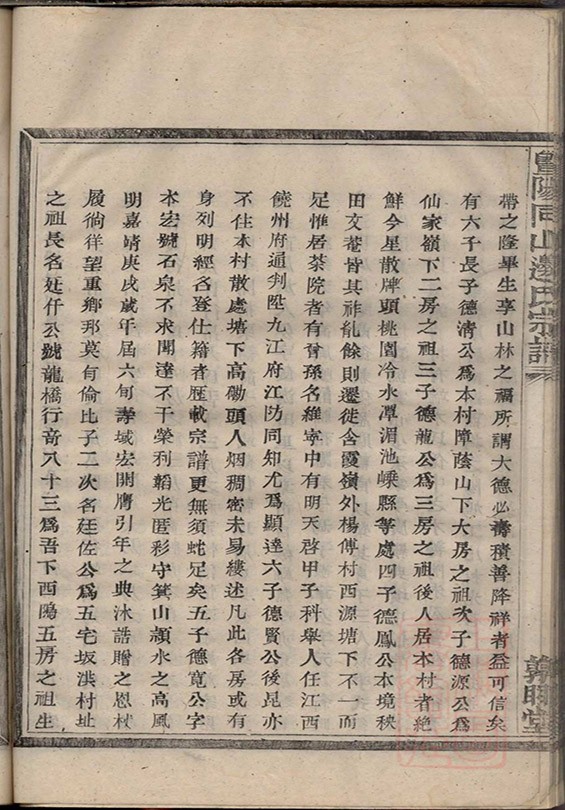 暨陽同山邊氏宗譜
敦睦堂
帶之隆畢生享山林之福所謂大德必壽積善降祥者益可信矣
有六子長子德清公為本村障蔭山下大房之祖次子德源公為
仙家嶺下二房之祖三子德龍公為三房之祖後人居本村者絶
鮮今星散牌頭桃園冷水潭湄池嵊縣等處四子德鳳公本境秧
田文菴皆其祚龍餘則遷徙含霞嶺外楊傅村西源塘下不一而
足惟居茶院者有曾孫名維寧中有明天啓甲子科舉人任江西
饒州府通判陞九江府江防同知尤為顯達六子德賢公後昆亦
不住本村散處塘下高磡頭人烟稠密未易縷述凡此各房或有
身列明經名登仕籍者歷載宗譜更無須蛇足矣五子德寬公字
本宏號石泉不求聞達不干榮利韜光匿彩守箕山潁水之高風
明嘉靖庚戌歲年屆六旬壽域宏開膺引年之典沐誥贈之恩杖
履徜徉望重鄉邦莫有倫比子二次名廷佐公為五宅坂洪村址
之祖長名廷仟公號龍橋行音八十三為吾下西陽五房之祖生